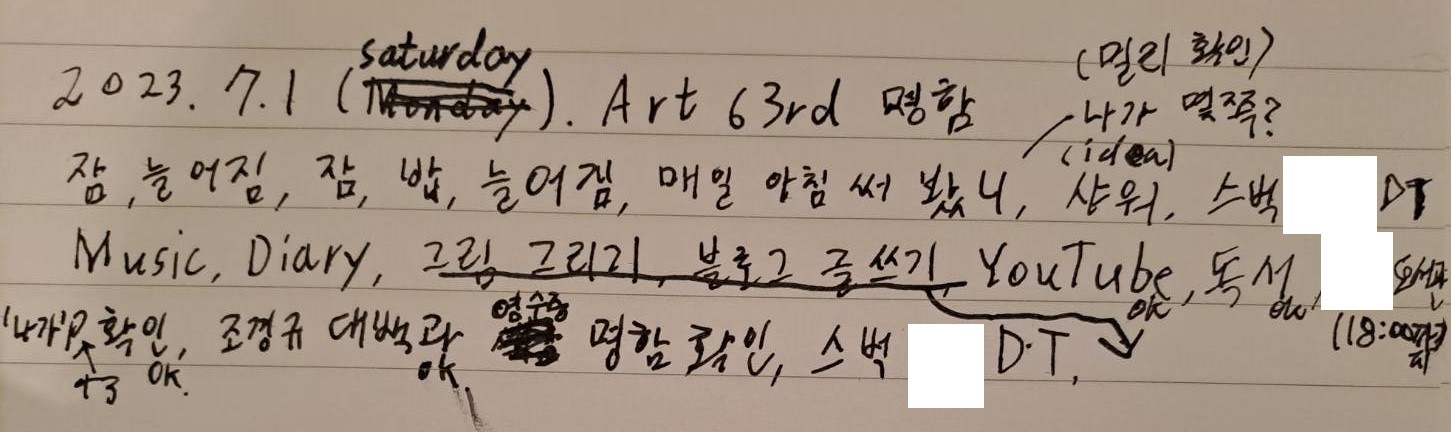 saturday (밀리 확인)
2023. 7.1 (Monday). Art 63rd 명함 나가 몇쪽?
(idea)
잠, 늘어짐, 잠, 밥, 늘어짐, 매일 아침 써 봤니, 샤워, 스벅 DT
Music, Diary, 그림 그리기, 블로그 글쓰기, YouTube, 독서, 도서관
ok ok
영수증 (18:00까지
'나가' P 확인, 조경규 대백과 명함 확인, 스벅 D.T,
+3 OK. ok.